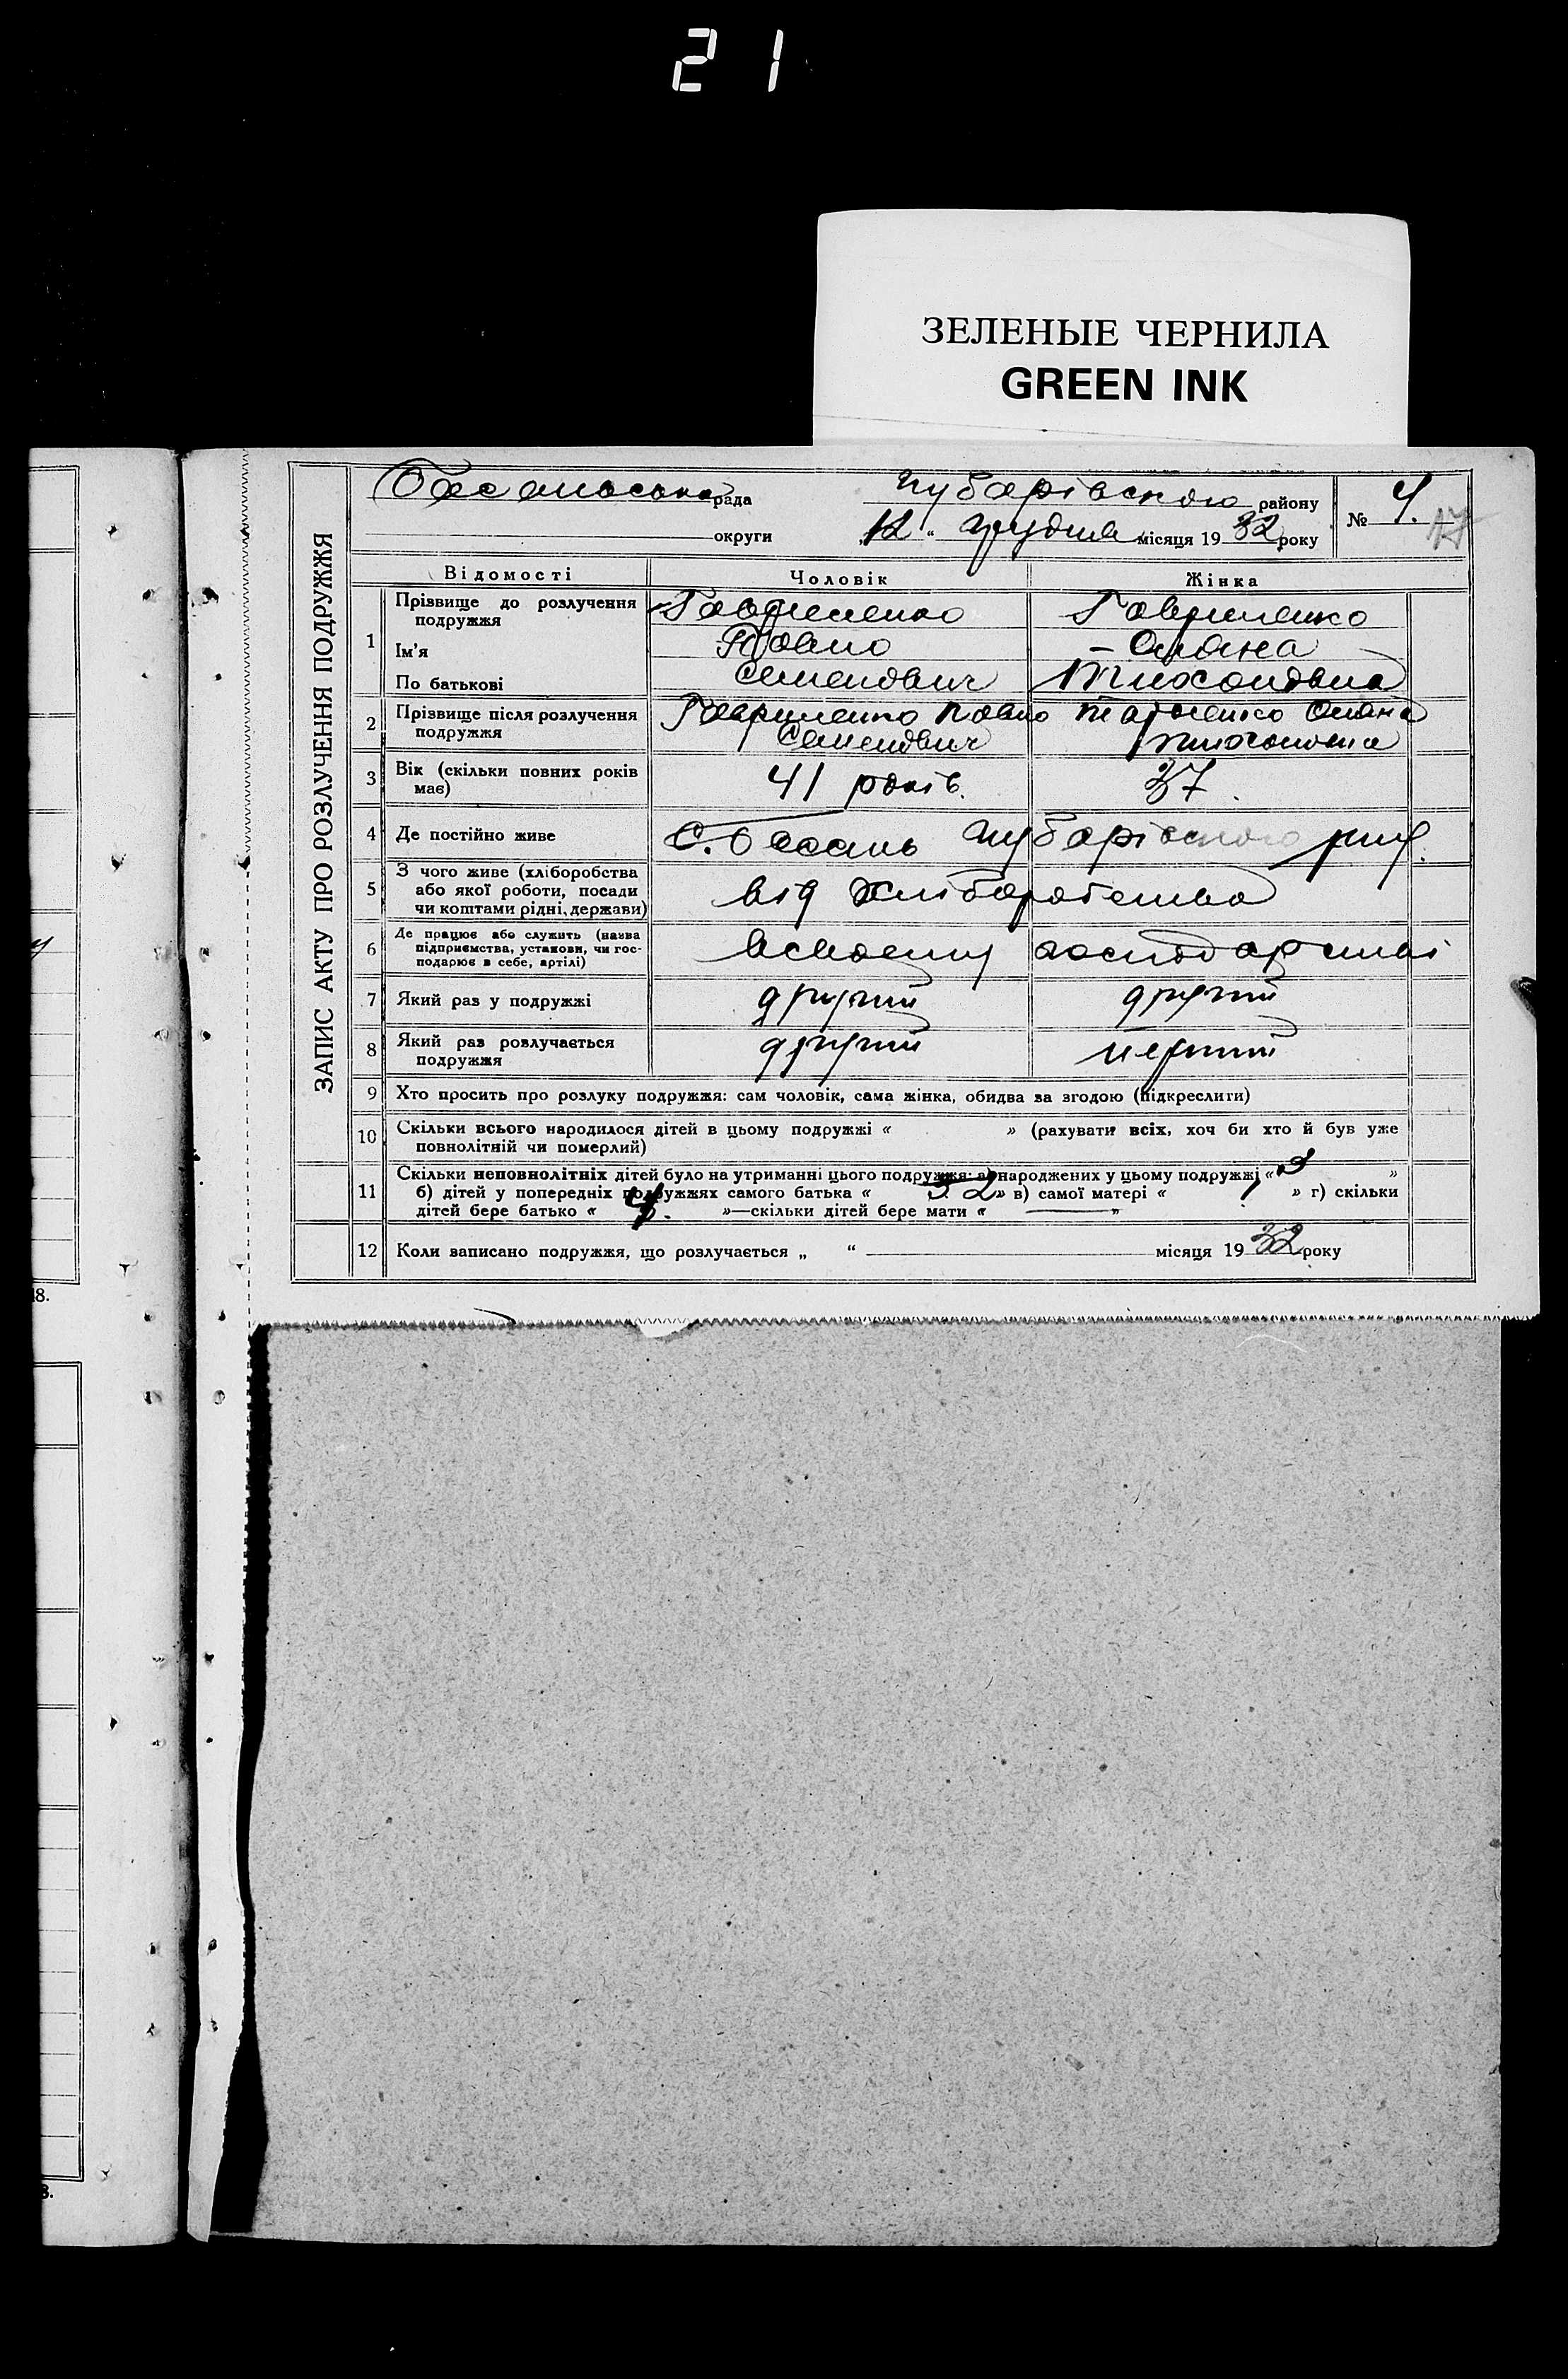 21
ЗЕЛЕНЫЕ ЧЕРНИЛА
GREEN INK
ЗАПИС АКТУ ПРО РОЗЛУЧЕННЯ ПОДРУЖЖЯ
рада Чубарівського району
округи „12“ грудня місяця 1932 року
№ 4. 17
Відомості Чоловік Жінка
1 Прізвище до розлучення подружжя Гавриленко Гавриленко
Ім’я Павло Оляна
По батькові Семенович Тихоновна
2 Прізвище після розлучення Гавриленко Павло Оляна
подружжя Семенович Тихоновна
3 Вік (скільки повних років 41 років. 37
має)
4 Де постійно живе С. Обсань Чубарівського
5 З чого живе (хліборобства
або якої роботи, посади від хліборобства
чи коштами рідні, держави)
6 Де працює або служить (назва
підприємства, установи, чи гос- в своєму господарстві
подарює в себе, артілі)
7 Який раз у подружжі другий другий
8 Який раз розлучається другий перший
подружжя
9 Хто просить про розлуку подружжя: сам чоловік, сама жінка, обидва за згодою (підкреслити)
10 Скільки всього народилося дітей в цьому подружжі « » (рахувати всіх, хоч би хто й був уже
повнолітній чи померлий)
11 Скільки неповнолітніх дітей було на утриманні цього подружжя: а) народжених у цьому подружжі « »
б) дітей у попередніх подружжях самого батька « 2 » в) самої матері « 1 » г) скільки
дітей бере батько « 4. »—скільки дітей бере мати « — »
12 Коли записано подружжя, що розлучається „ “ місяця 1932 року
18.
8.